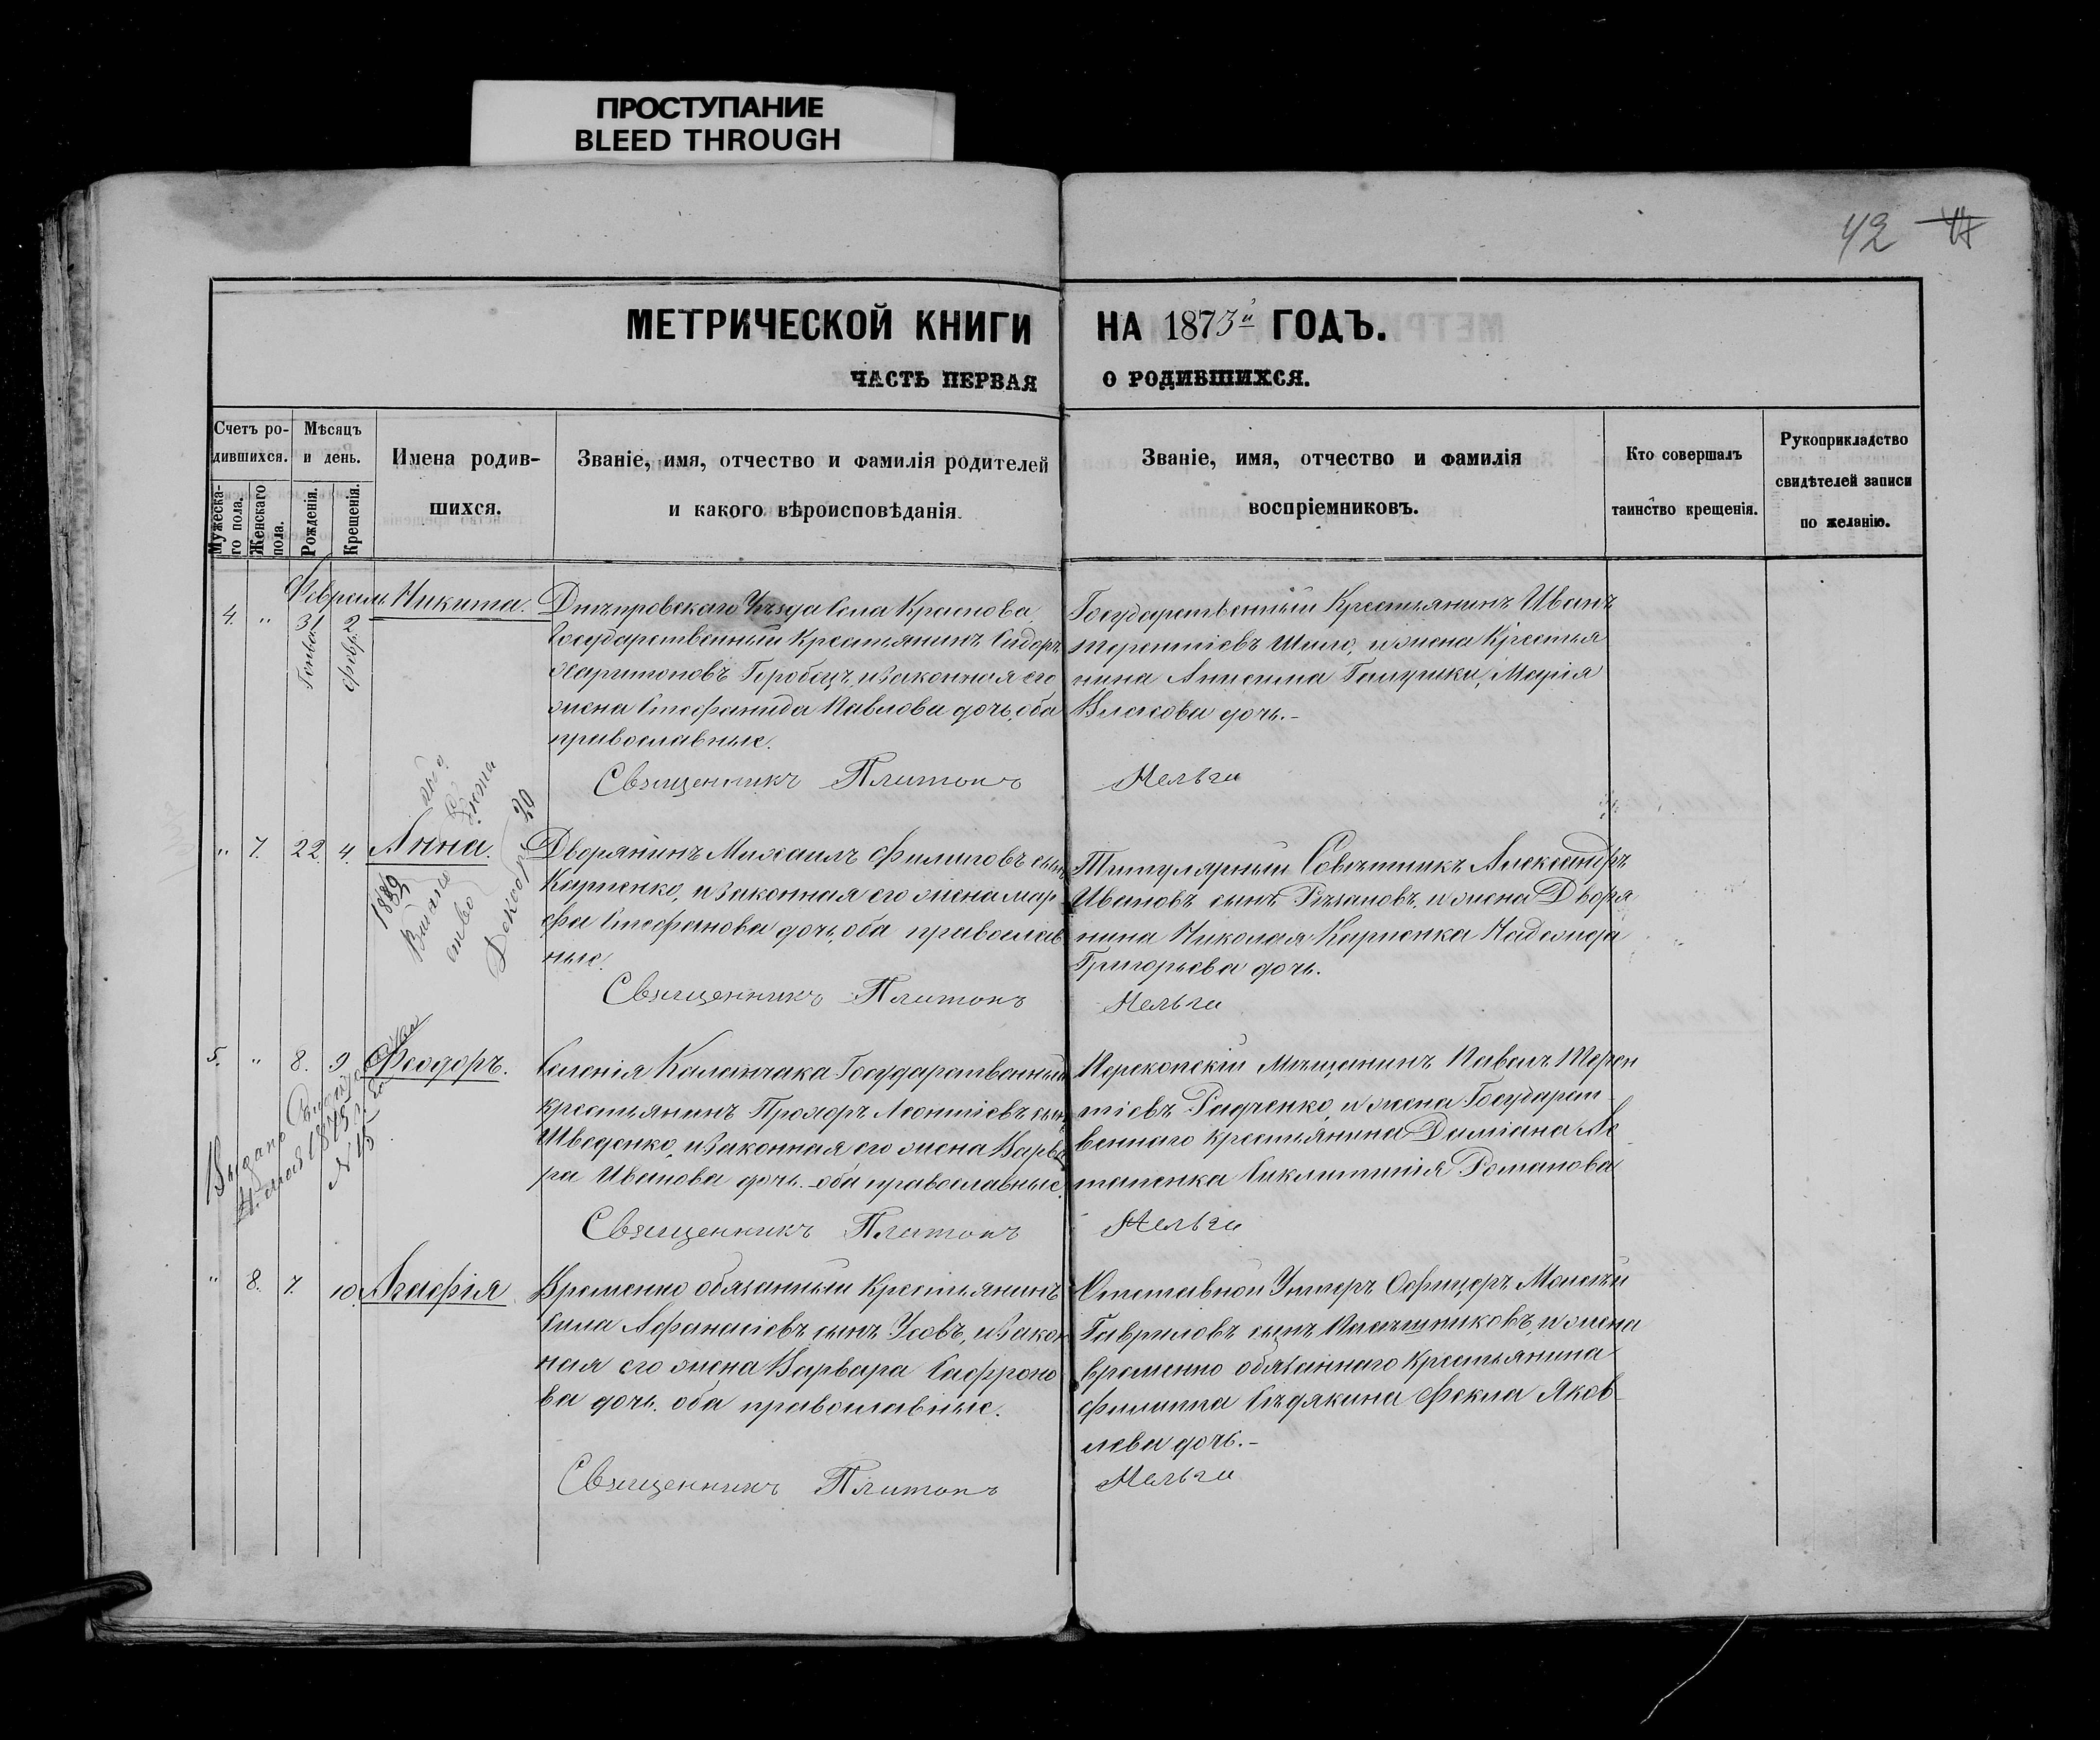 ПРОСТУПАНИЕ
BLEED THROUGH
42 47
МЕТРИЧЕСКОЙ КНИГИ НА 1873й ГОДЪ.
ЧАСТЬ ПЕРВАЯ О РОДИВШИХСЯ.
Счетъ ро-
дившихся.
Мужеска-
го пола.
Женскаго
пола.
Мѣсяцъ
и день.
Рожденія.
Крещенія.
Имена родив-
шихся.
Званіе, имя, отчество и фамилія родителей
и какого вѣроисповѣданія.
Званіе, имя, отчество и фамилія
воспріемниковъ.
Кто совершалъ
таинство крещенія.
Рукоприкладство
свидѣтелей записи
по желанію.
Февраль
4. " 31 2 Никита.
Генваря февр.
Днѣпровскаго Уѣзда Села Краснова
Государственный Крестьянинъ Сидоръ
Харитоновъ Горобецъ, и законная его
жена Стефанида Павлова дочь, оба
православные.
Государственный Крестьянинъ Иванъ
Терентіевъ Шило, и жена Крестья
нина Анисима Галушки, Марія
Власова дочь.-
Священникъ Платонъ Мельга
" 7. 22 4. Анна.
1889
Декабр 20
Дворянинъ Михаилъ Филиповъ сынъ
Карпенко, и законная его жена Мар
фа Стефанова дочь, оба православ
ные.
Титулярный Совѣтникъ Александръ
Ивановъ сынъ Рѣзановъ, и жена Дворя
нина Николая Карпенка Надежда
Григорьева дочь.
Священникъ Платонъ Мельга
5. " 8. 9 Феодоръ.
Выдано
21 мая 1875 г.
N 15
Селенія Каланчака Государственный
крестьянинъ Прохоръ Леонтіевъ сынъ
Шведенко, и законная его жена Варва
ра Иванова дочь. оба православные.
Перекопскій Мѣщанинъ Павелъ Терен
тіевъ Радченко, и жена Государст
веннаго крестьянина Даміана Ос
тапенка Сиклитикія Романова
Священникъ Платонъ Мельга
" 8. 7. 10. Агафія
Временно обязанный Крестьянинъ
Сила Афанасіевъ сынъ Усовъ, и закон
ная его жена Варвара Сафроно
ва дочь. оба православные.
Отставной Унтеръ Офицеръ Моисей
Гавриловъ сынъ Пасѣшниковъ, и жена
временно обязаннаго Крестьянина
Филиппа Сѣдякина Фекла Яков
лева дочь.-
Священникъ Платонъ Мельга